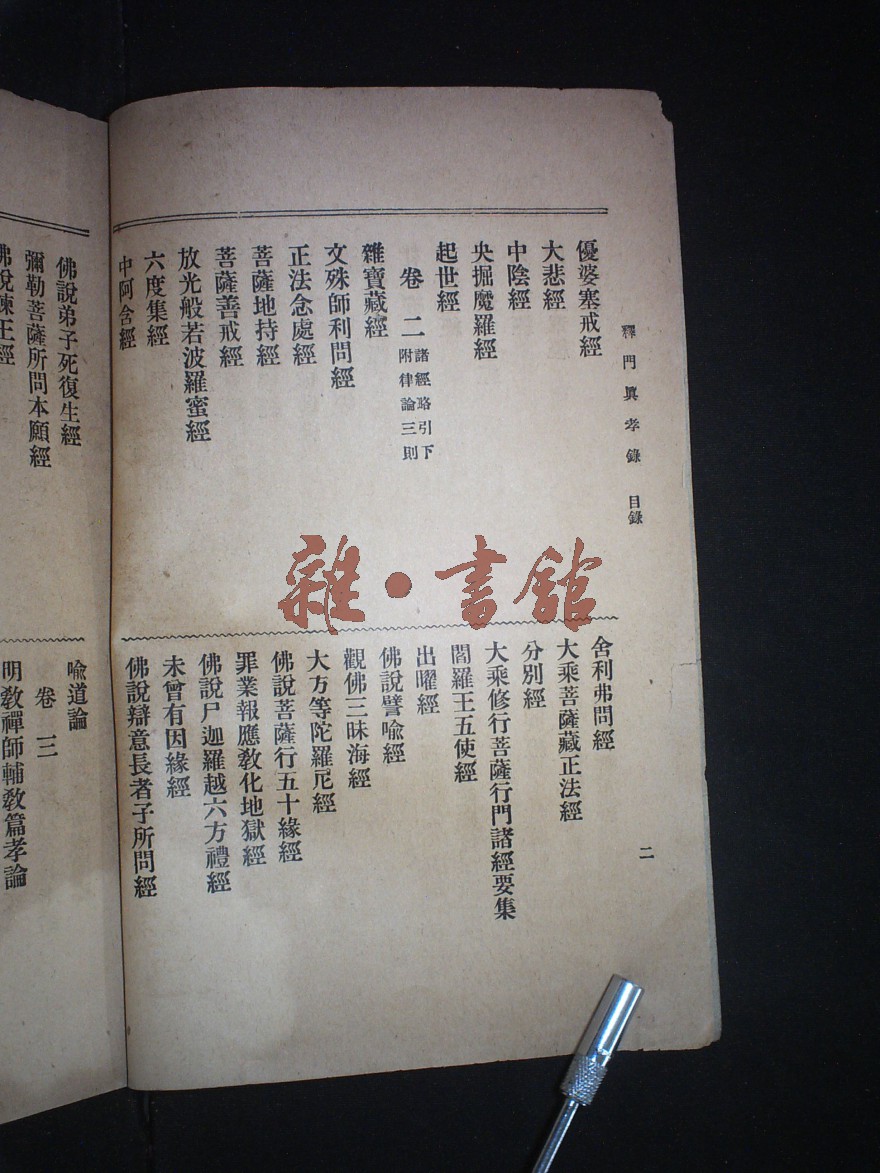 釋門眞孝錄 目錄
二
優婆塞戒經
大悲經
中陰經
央掘魔羅經
起世經
卷二 諸經略引下
附律論三則
雜寶藏經
文殊師利問經
正法念處經
菩薩地持經
菩薩善戒經
放光般若波羅蜜經
六度集經
中阿含經
舍利弗問經
大乘菩薩藏正法經
分別經
大乘修行菩薩行門諸經要集
閻羅王五使經
出曜經
佛說譬喻經
觀佛三昧海經
大方等陀羅尼經
佛說菩薩行五十緣經
罪業報應教化地獄經
佛說尸迦羅越六方禮經
未曾有因緣經
佛說辯意長者子所問經
佛說弟子死復生經
彌勒菩薩所問本願經
佛說諫王經
喻道論
卷三
明教禪師輔教篇孝論
雜·書館